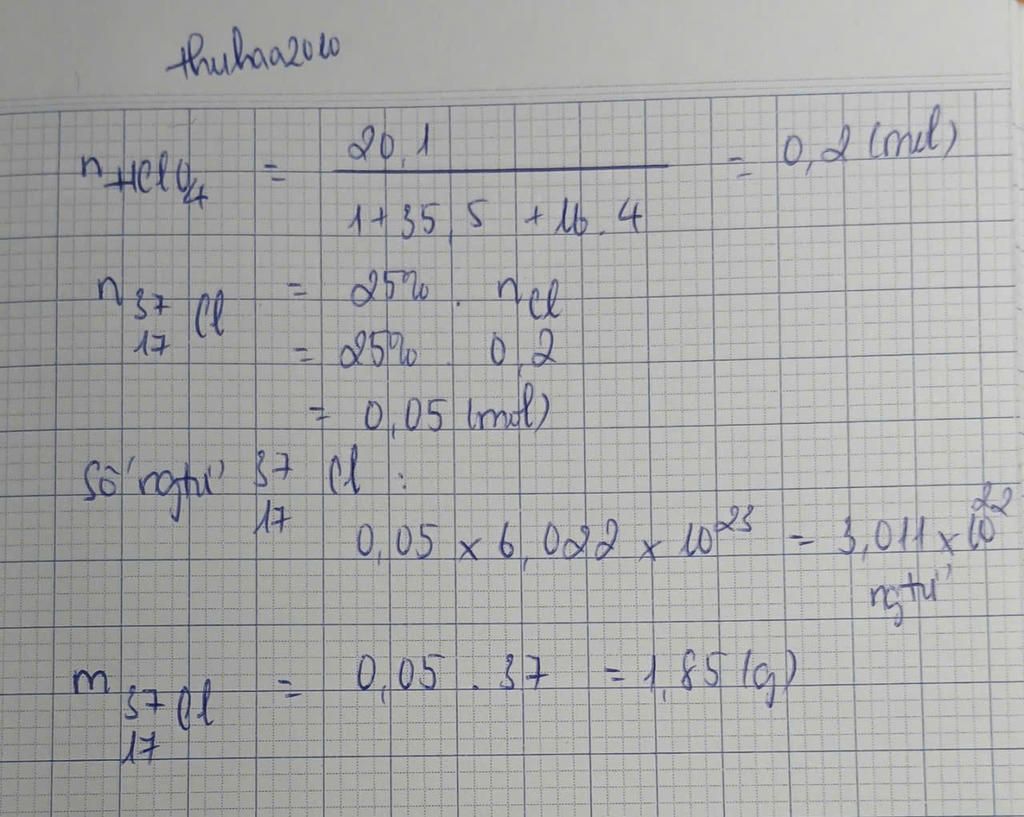 thuhaa2010
n HClO4 = 20,1 / (1 + 35,5 + 16.4) = 0,2 (mol)
n 37 17 Cl = 25% . n Cl
= 25% . 0,2
= 0,05 (mol)
Số ngtử 37 17 Cl :
0,05 x 6,022 x 10^23 = 3,011 x 10^22
ngtử
m 37 17 Cl = 0,05 . 37 = 1,85 (g)